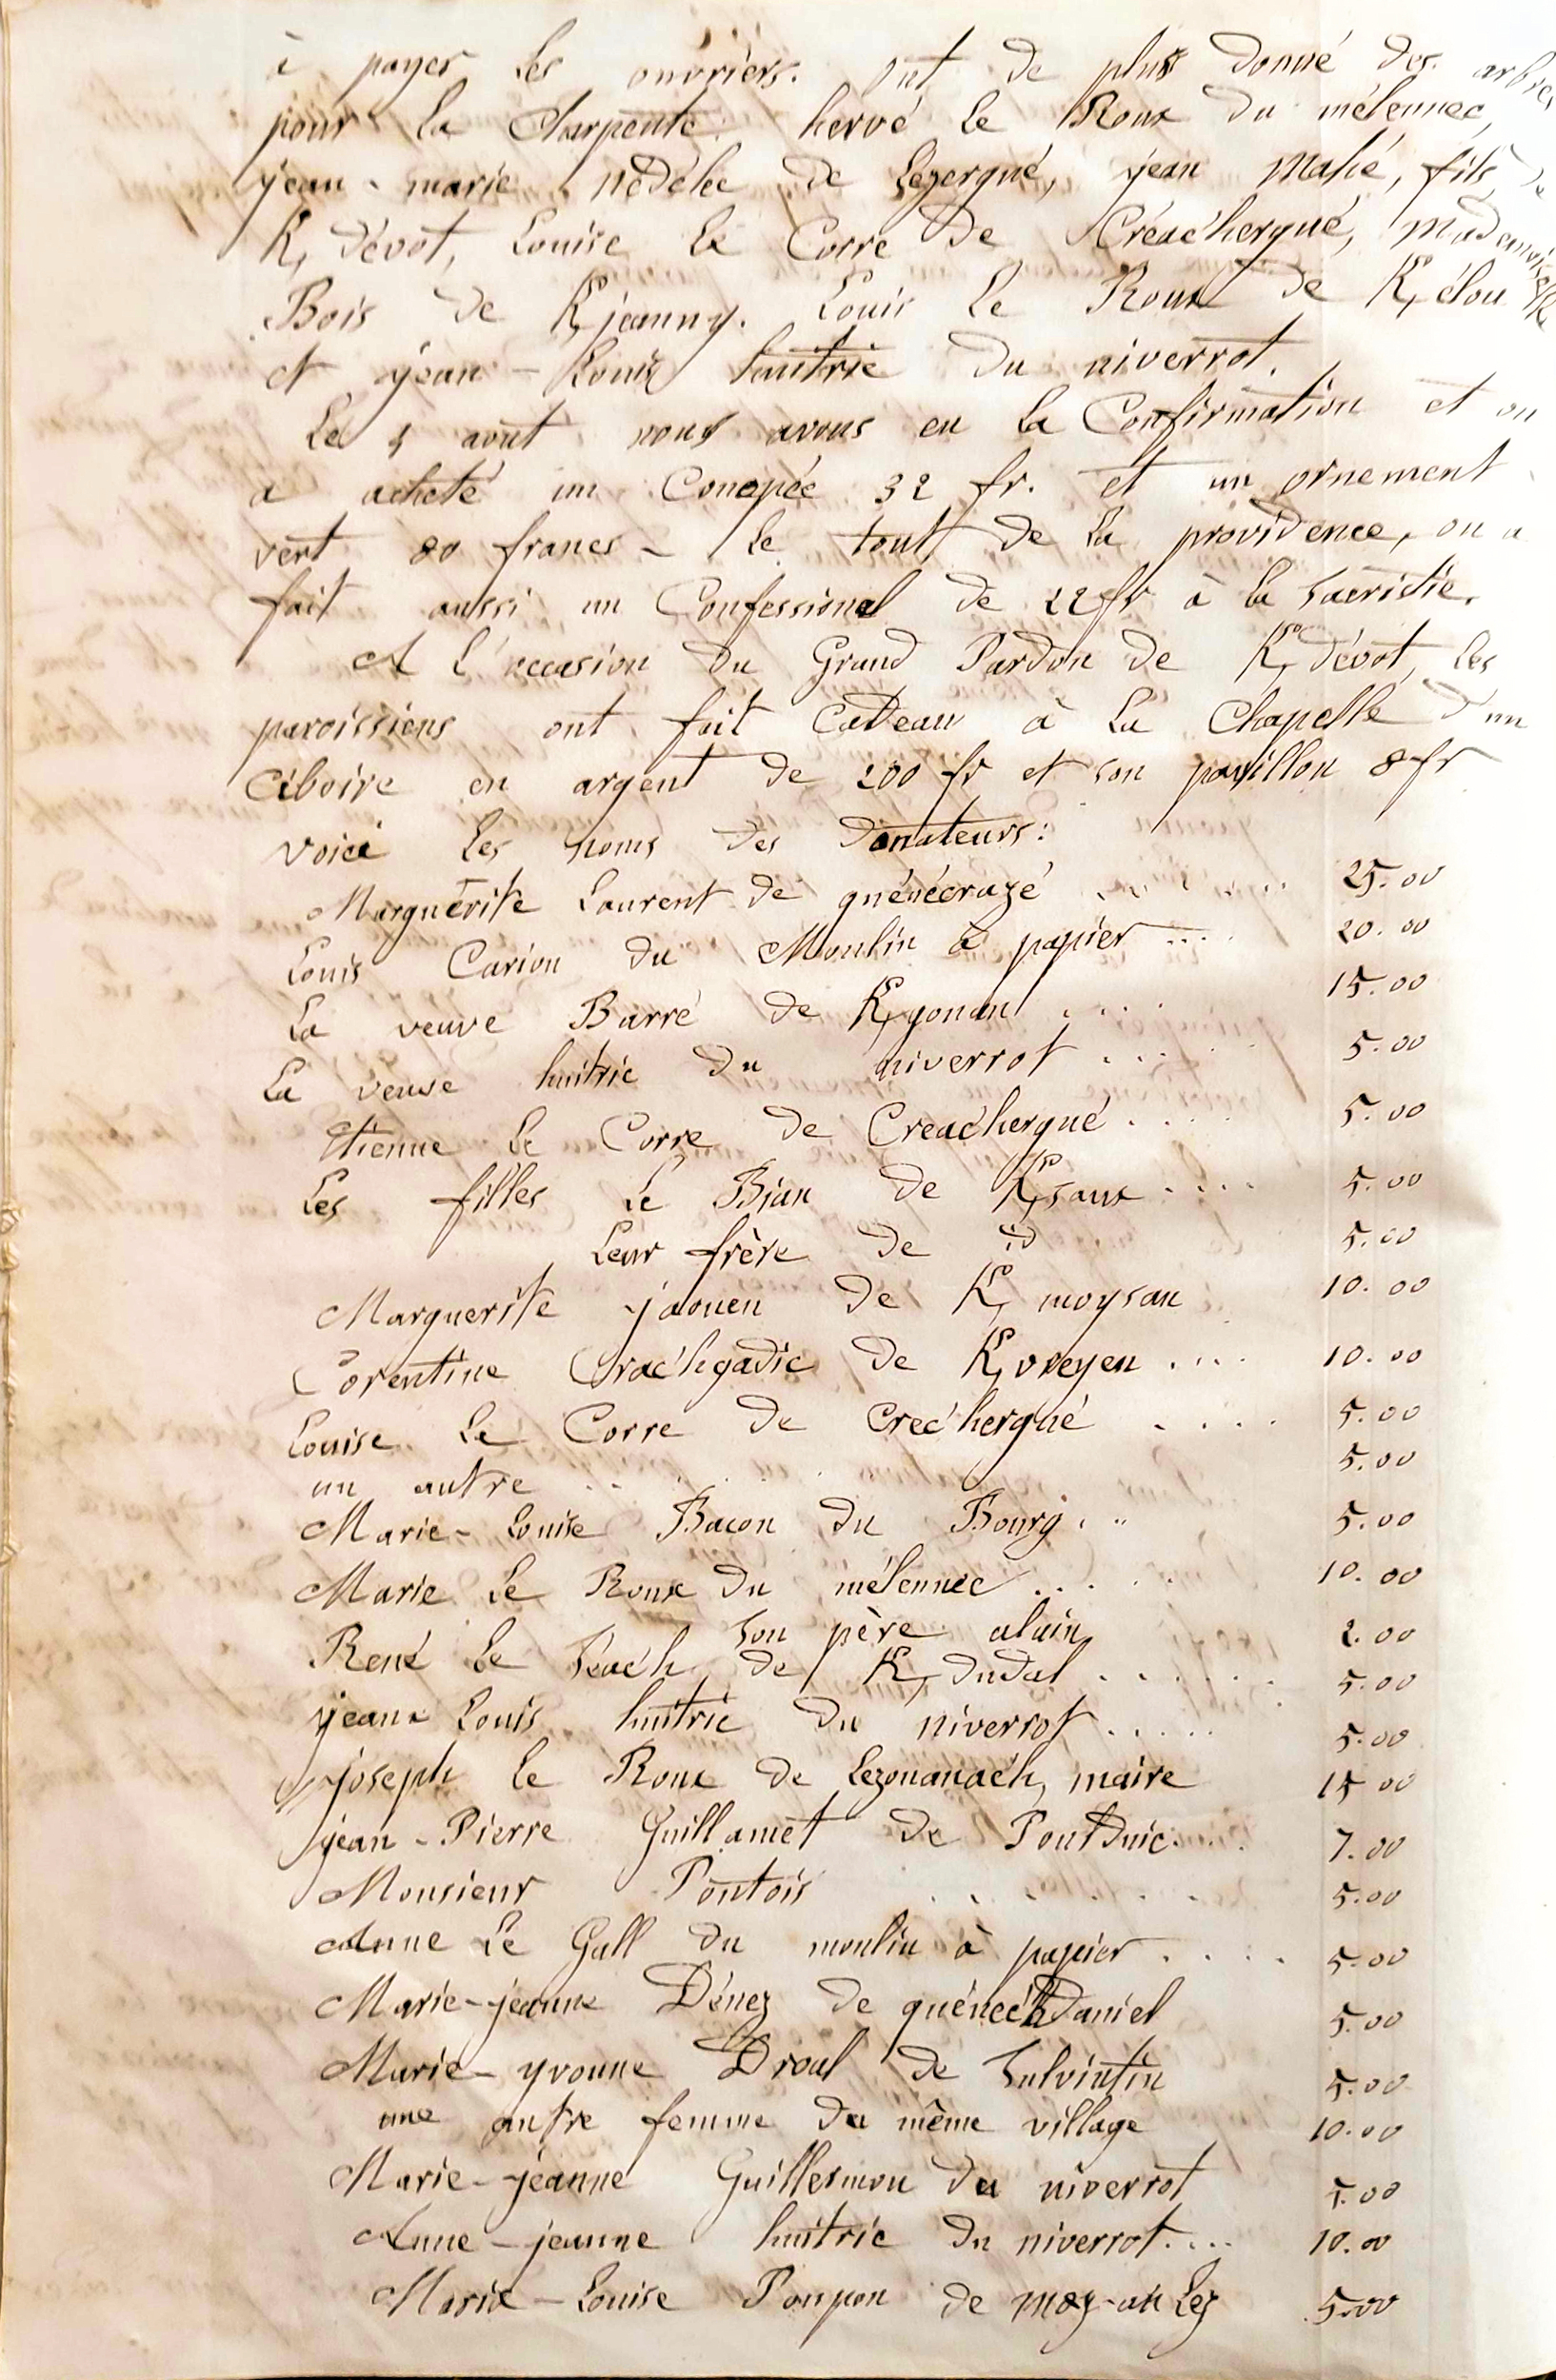 à payer les ouvriers. ont de plus donné des arbres
pour la charpente hervé le Roux du mélennec,
jean-marie nédélec de Lezergué, jean Mahé, fils, de
K/dévot, Louise le Corre de Créac'hergué, mademoiselle
Bois de K/jeanny. Louis le Roux de K/élou
et jean-Louis huitric du niverrot.
Le 4 août nous avons eu la Confirmation et on
a acheté un Conopée 32 fr. et un ornement
vert 80 francs - le tout de la providence, on a
fait aussi un Confessional de 22 fr à la sacristie.
A l'occasion du Grand Pardon de K/dévot, les
paroissiens ont fait cadeau à la Chapelle d'un
Ciboire en argent de 200 fr et son pavillon 8 fr
voici les noms des donateurs:
Marguerite Laurent de quénécrazé ...... 25.00
Louis Carion du Moulin à papier .... 20.00
La veuve Barré de K/gonan .... 15.00
La veuve huitric du niverrot ..... 5.00
Etienne le Corre de Creac'hergué .... 5.00
Les filles Le Bian de K/saux .... 5.00
Leur frère de id 5.00
Marguerite jaouen de K/moysan 10.00
Corentine Crac'hgadic de K/vreyen .... 10.00
Louise le Corre de Crec'hergué .... 5.00
un autre .. . . . . 5.00
Marie-Louise Bacon du Bourg . .. 5.00
Marie Le Roux du mélennec ..... 10.00
son père alain 2.00
René Le Séac'h de K/dudal ...... 5.00
jean Louis huitric du niverrot ..... 5.00
joseph le Roux de Lezouanac'h, maire 15 00
jean-Pierre Guillamet de Poulduic .... 7.00
Monsieur Pontois ...... 5.00
Anne Le Gall du moulin à papier .... 5.00
Marie-jeanne Dénez de quénec'hdaniel 5.00
Marie-yvonne Droal de Sulvintin 5.00
une autre femme du même village 10.00
Marie-jeanne Guillermou du niverrot 5.00
Anne-jeanne huitric du niverrot.... 10.00
Marie-Louise Poupon de moz-an Lez 5.00